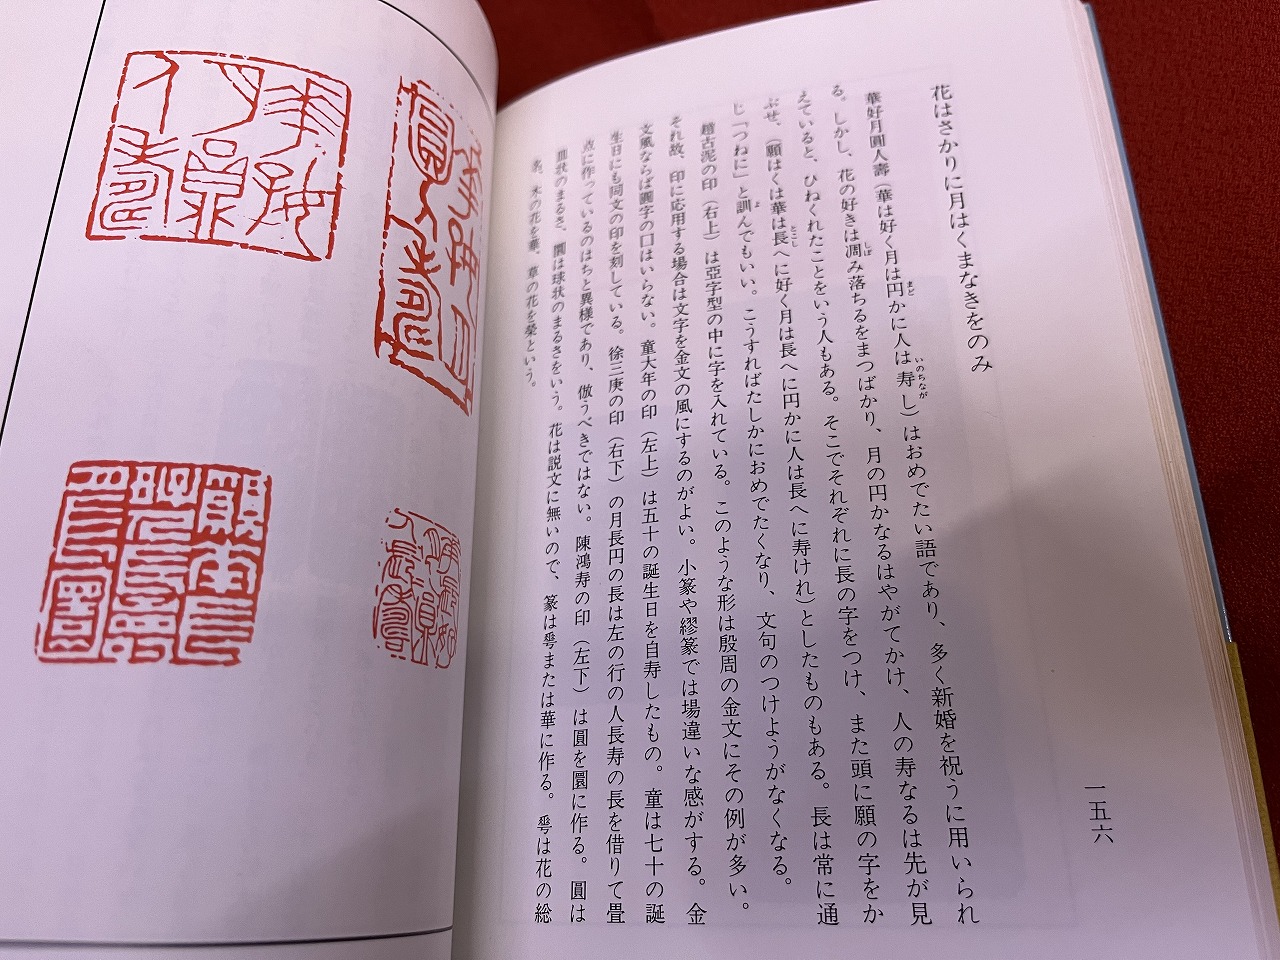 花はさかりに月はくまなきをのみ
華好月圓人壽（華は好く月は円かに人は寿し）はおめでたい語であり、多く新婚を祝うに用いられ
まど
いのちなが
る。しかし、花の好きは凋み落ちるをまつばかり、月の円かなるはやがてかけ、人の寿なるは先が見
しぼ
えていると、ひねくれたことをいう人もある。そこでそれぞれに長の字をつけ、また頭に願の字をか
ぶせ、（願はくは華は長へに好く月は長へに円かに人は長へに寿けれ）としたものもある。長は常に通
とこし
じ「つねに」と訓んでもいい。こうすればたしかにおめでたくなり、文句のつけようがなくなる。
よ
趙古泥の印（右上）は亞字型の中に字を入れている。このような形は殷周の金文にその例が多い。
それ故、印に応用する場合は文字を金文の風にするのがよい。小篆や繆篆では場違いな感がする。金
文風ならば圓字の囗はいらない。童大年の印（左上）は五十の誕生日を自寿したもの。童は七十の誕
生日にも同文の印を刻している。徐三庚の印（右下）の月長円の長は左の行の人長寿の長を借りて畳
点に作っているのはちと異様であり、倣うべきではない。陳鴻寿の印（左下）は圓を圜に作る。圓は
皿状のまるさ、圜は球状のまるさをいう。花は説文に無いので、篆は𠌶または華に作る。𠌶は花の総
名、木の花を華、草の花を榮という。
一五六